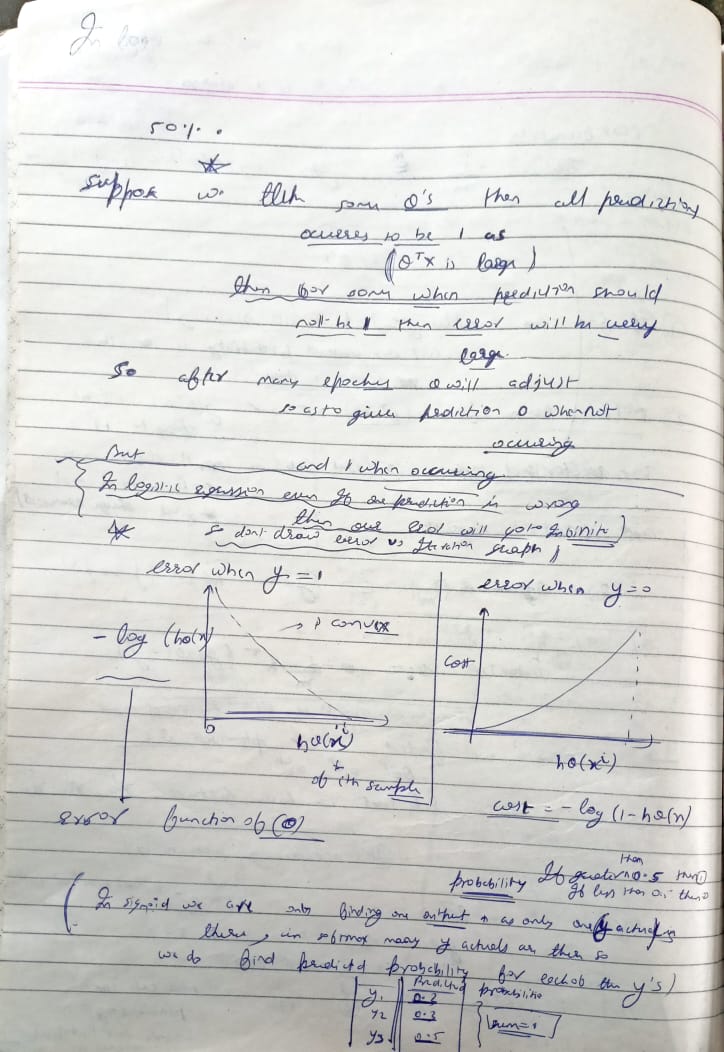 In log
50%.
suppose we then some θ's then all prediction
occures to be 1 as
(θᵀx is large)
then for some when prediction should
not be 1 then error will be very
large.
so after many epoches θ will adjust
so as to give prediction 0 when not
occuring
But and 1 when occuring
{ In logistic egression even If one prediction is wrong
then our error will go to Infinite }
so dont draw error vs Iteration graph
error when y = 1
error when y = 0
- log (hθ(x))
→ convex
cost
0
hθ(xⁱ)
of ith sample
hθ(xⁱ)
error function of (θ)
cost = - log (1 - hθ(x))
then
probability If greater 0.5 then 1
If less than 0.5 then 0
( In sigmoid we are only finding one output as only one y actual is
there, in sofmax many y actuals are there so
we do find predictd probability for each of the y's)
Predicted probabilities
y₁ 0.2
y₂ 0.3 sum=1
y₃ 0.5